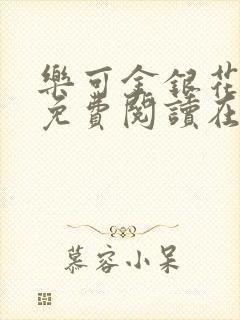 樂可金銀花
免費閱讀在
慕容小呆